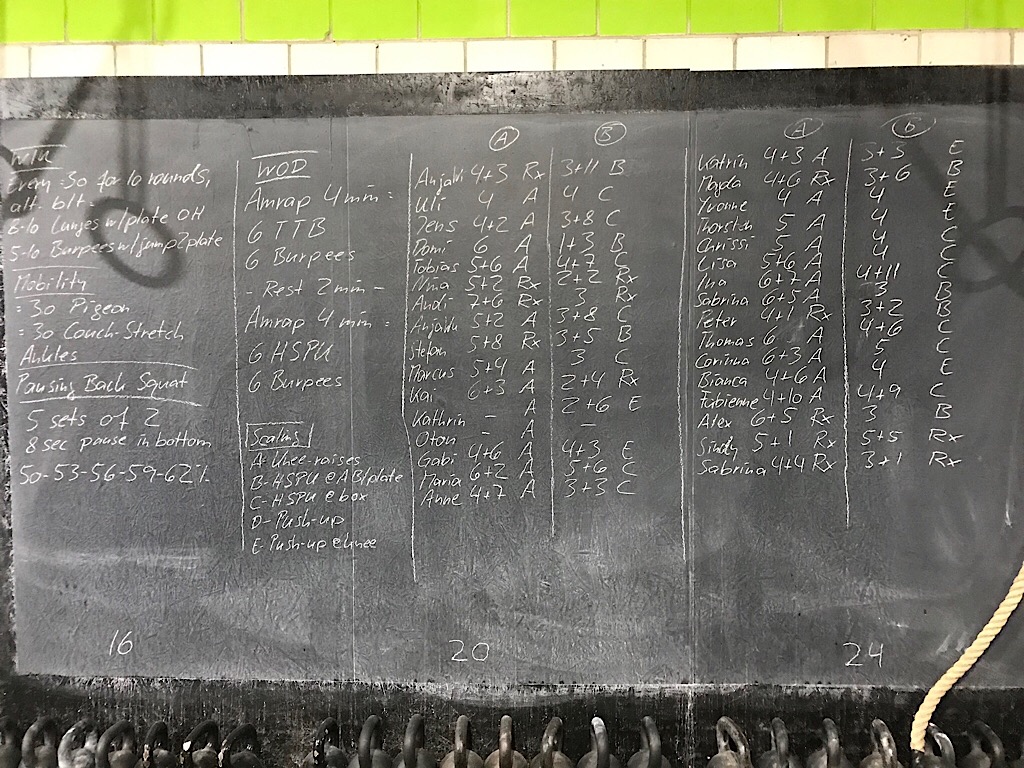 WU
Every :30 for 10 rounds,
alt. btt.
6-10 Lunges w/plate OH
5-10 Burpees w/jump2plate
Mobility
:30 Pigeon
:30 Couch-Stretch
Ankles
Pausing Back Squat
5 sets of 2
8 sec pause in bottom
50-53-56-59-62%
16
WOD
Amrap 4 min:
6 TTB
6 Burpees
- Rest 2 min -
Amrap 4 min:
6 HSPU
6 Burpees
Scaling
A-Knee-raises
B-HSPU @ AB/plate
C-HSPU @ box
D-Push-up
E-Push-up @ knee
A B
Anjali 4+3 Rx 3+11 B
Uli 4 A 4 C
Jens 4+2 A 3+8 C
Domi 6 A 1+3 B
Tobias 5+6 A 4+7 C
Nina 5+2 Rx 2+2 Rx
Andi 7+6 Rx 3 Rx
5+2 A 3+8 C
Stefan 5+8 Rx 3+5 B
Marcus 5+4 A 3 C
Kai 6+3 A 2+4 Rx
Kathrin - A 2+6 E
- A -
Gabi 4+6 A 4+3 E
Maria 6+2 A 5+6 C
Anne 4+7 A 3+3 C
20
A B
Katrin 4+3 A 3+3 E
Magda 4+6 Rx 3+6 B
Yvonne 4 A 4 E
Thorsten 5 A 4 E
Chrissi 5 A 4 C
Lisa 5+6 A 4 C
Ina 6+7 A 4+11 C
Sabrina 6+5 A 3 B
Peter 4+1 Rx 3+2 B
Thomas 6 A 4+6 C
Corinna 6+3 A 5 C
Bianca 4+6 A 4 E
Fabienne 4+10 A 4+9 C
Alex 6+5 Rx 3 B
Sindy 5+1 Rx 5+5 Rx
Sabrina 4+4 Rx 3+1 Rx
24